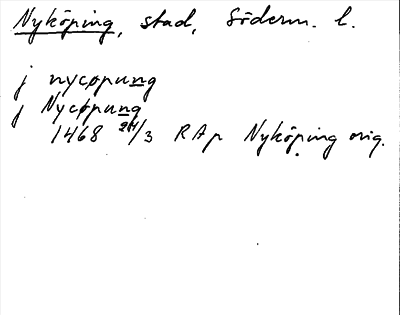 Nyköping, stad, Söderm. l.
j nycøpung
j Nycøpung
1468 24/3 RAp Nyköping orig.